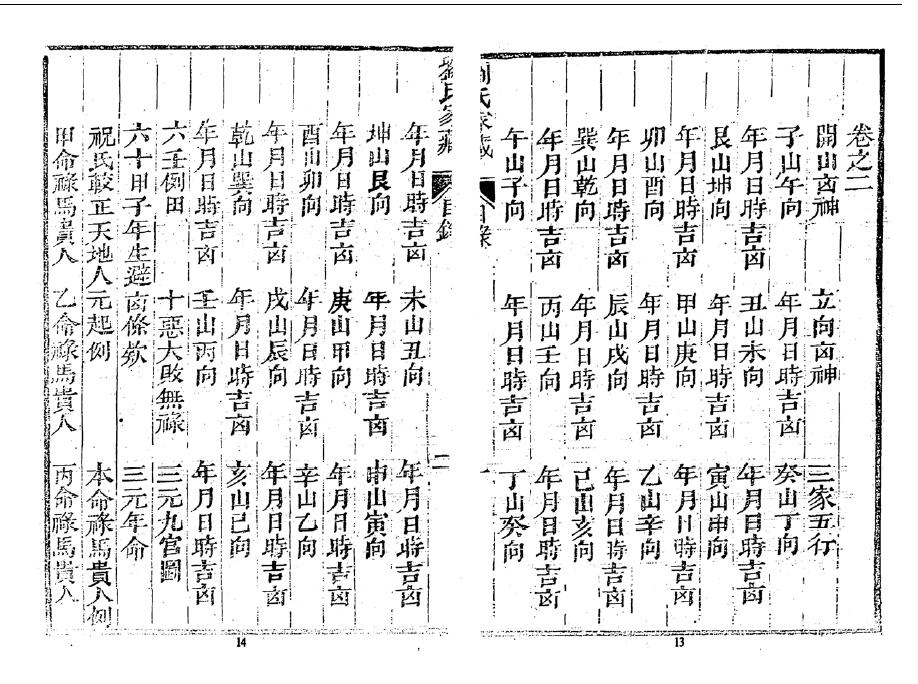 卷之二
開山㐫神 立向㐫神 三家五行
子山午向 年月日時吉㐫 癸山丁向
年月日時吉㐫 丑山未向 年月日時吉㐫
艮山坤向 年月日時吉㐫 寅山申向
年月日時吉㐫 甲山庚向 年月日時吉㐫
卯山酉向 年月日時吉㐫 乙山辛向
年月日時吉㐫 辰山戌向 年月日時吉㐫
巽山乾向 年月日時吉㐫 巳山亥向
年月日時吉㐫 丙山壬向 年月日時吉㐫
午山子向 年月日時吉㐫 丁山癸向
劉氏家藏 目錄 一
13
劉氏家藏 目錄 二
年月日時吉㐫 未山丑向 年月日時吉㐫
坤山艮向 年月日時吉㐫 申山寅向
年月日時吉㐫 庚山甲向 年月日時吉㐫
酉山卯向 年月日時吉㐫 辛山乙向
年月日時吉㐫 戌山辰向 年月日時吉㐫
乾山巽向 年月日時吉㐫 亥山巳向
年月日時吉㐫 壬山丙向 年月日時吉㐫
六壬例田 十惡大敗無祿 三元九官圖
六十甲子年生避㐫條欸 三元年命
祝氏較正天地人元起例 本命祿馬貴人例
甲命祿馬貴人 乙命祿馬貴人 丙命祿馬貴人
14